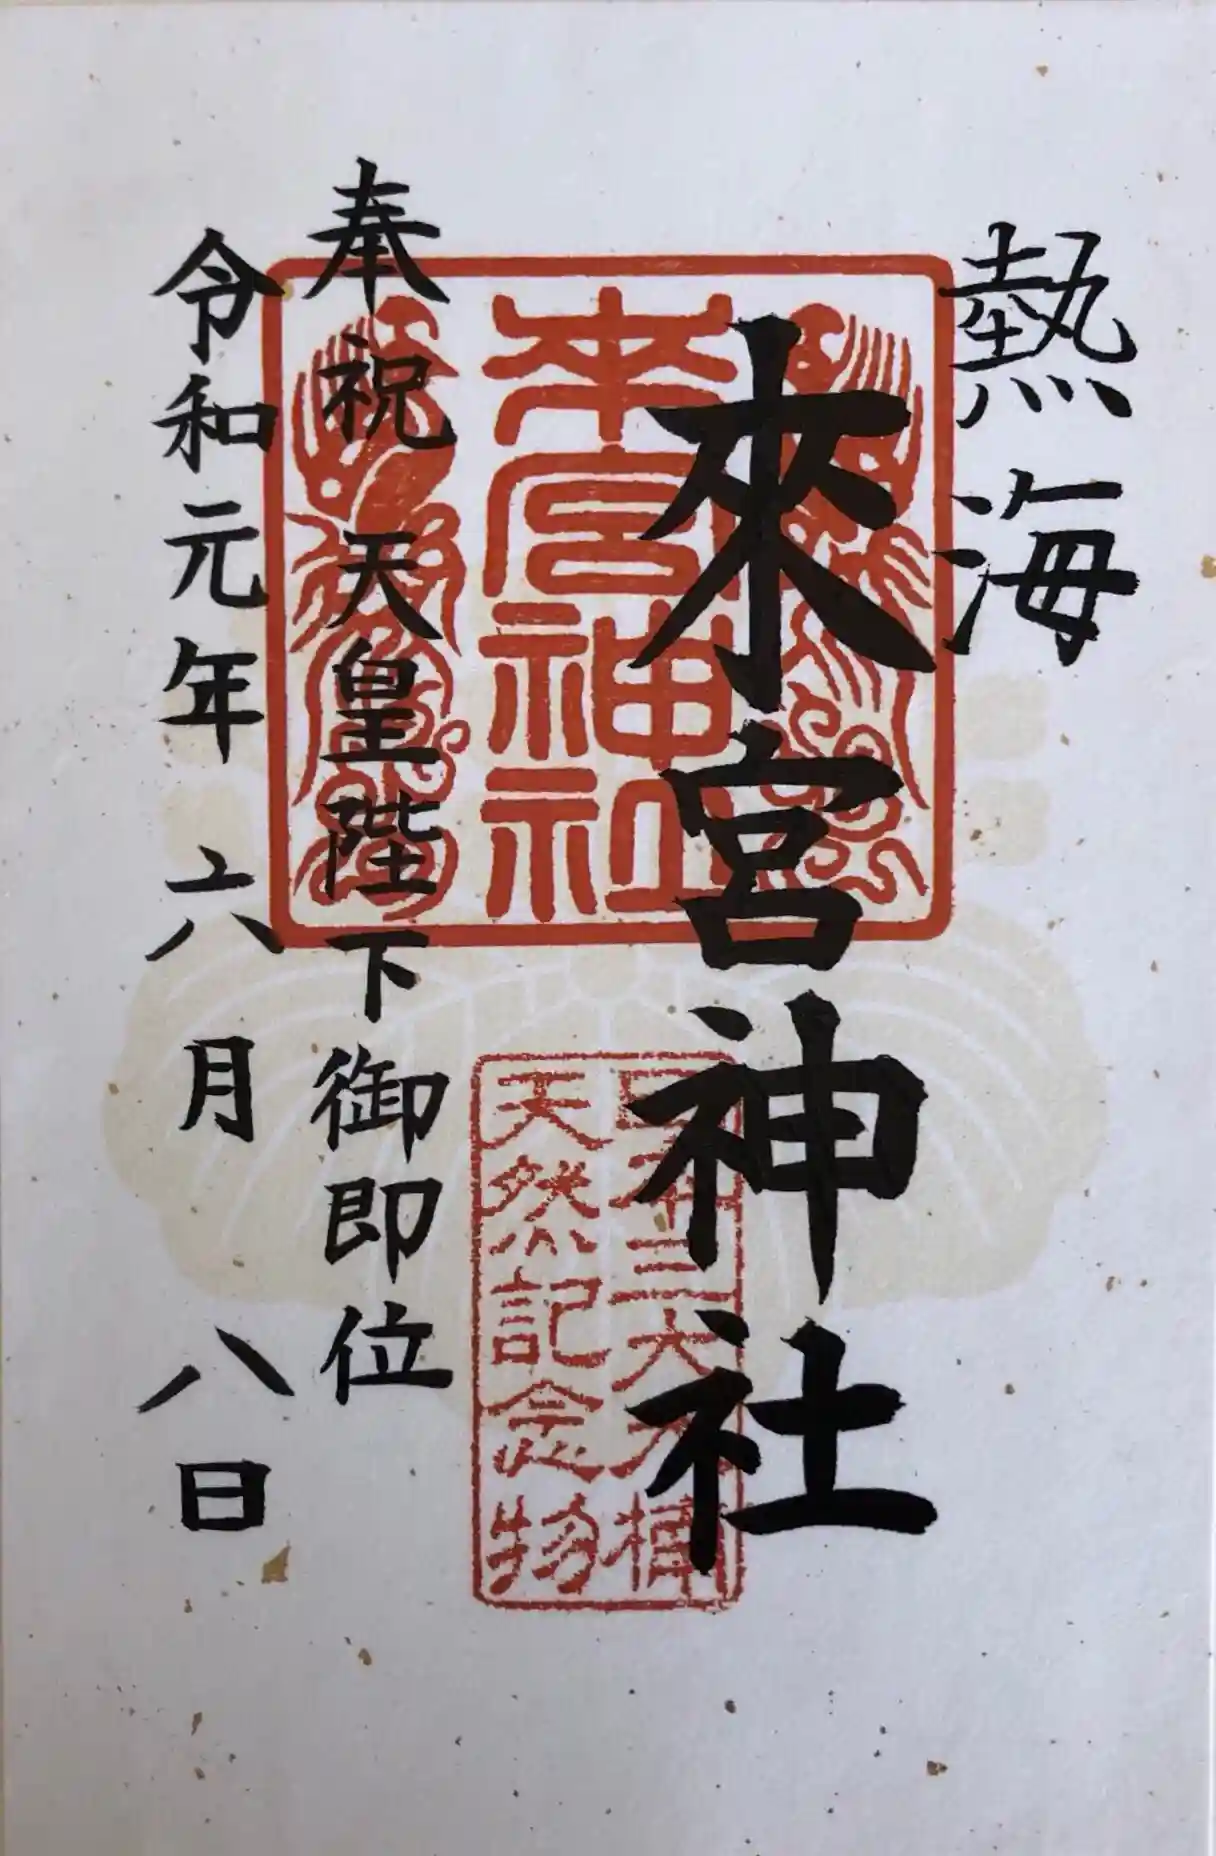 熱海
來宮神社
來宮神社
日本三大大楠
天然記念物
奉祝 天皇陛下御即位
令和元年 六月 八日